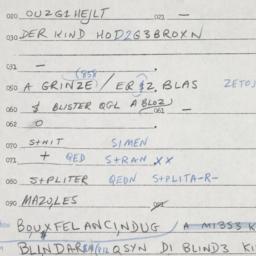 020 OU2G1HEJLT 021 —
030 DER KIND HOD2G3BROXN
031 — .
(858
050 A GRINZE / EQ$2. BLAS ZETO
060 $ BLISTER QGL A BLOZ) 061 —
062 O .
070 S+HIT SIMEN
071 + QED S+RAN XX
080 S+PLITER QEDN S+PLITA-R-
090 MAZO,LES 091
BO,UXFELANCINDUG A MIBS3 K
BLINDAR QSYN DI BLIND3 KI